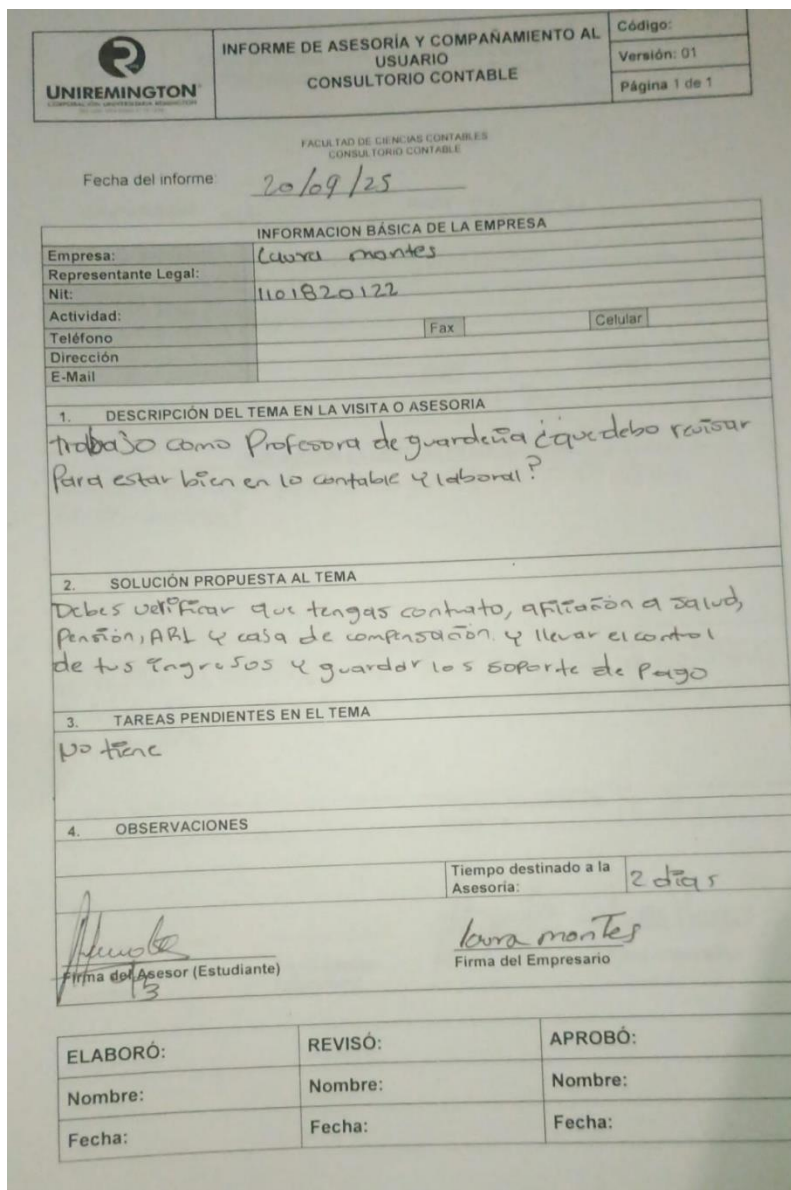 UNIREMINGTON
CORPORACIÓN UNIVERSITARIA REMINGTON
INFORME DE ASESORÍA Y COMPAÑAMIENTO AL
USUARIO
CONSULTORIO CONTABLE
Código:
Versión: 01
Página 1 de 1
FACULTAD DE CIENCIAS CONTABLES
CONSULTORIO CONTABLE
Fecha del informe: 20/09/25
INFORMACION BÁSICA DE LA EMPRESA
Empresa: Laura montes
Representante Legal:
Nit: 1101820122
Actividad:
Teléfono Fax Celular
Dirección
E-Mail
1. DESCRIPCIÓN DEL TEMA EN LA VISITA O ASESORIA
trabajo como Profesora de guardería ¿que debo revisar
Para estar bien en lo contable y laboral?
2. SOLUCIÓN PROPUESTA AL TEMA
Debes verificar que tengas contrato, afiliación a salud,
Pensión, ARL y casa de compensación y llevar el control
de tus ingresos y guardar los soporte de Pago
3. TAREAS PENDIENTES EN EL TEMA
No tiene
4. OBSERVACIONES
Tiempo destinado a la
Asesoría: 2 días
laura montes
Firma del Asesor (Estudiante) Firma del Empresario
ELABORÓ: REVISÓ: APROBÓ:
Nombre: Nombre: Nombre:
Fecha: Fecha: Fecha: